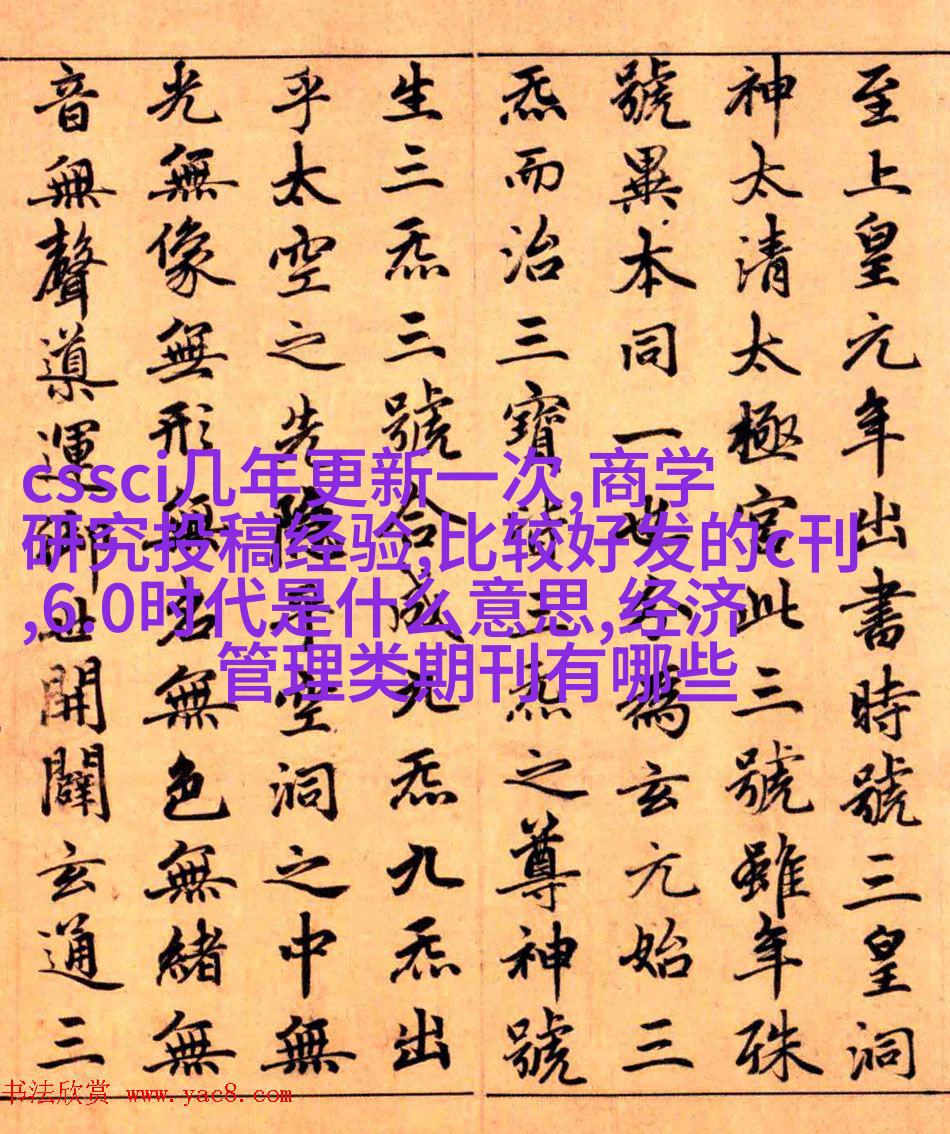 至上皇元年出書時號三皇洞
神太清太極宮此三號雖年殊
號異本同一也分為玄元始三
炁而治三寶皆三炁之尊神號
生三炁三號合成九炁九炁出
乎太空之先隱乎空洞之中無
光無像無形無名無色無緒無
音無聲導運御世開闢玄通三
cssci几年更新一次,商学
研究投稿经验,比较好发的c刊
,6.0时代是什么意思,经济
管理类期刊有哪些
书法欣赏 www.yac8.com